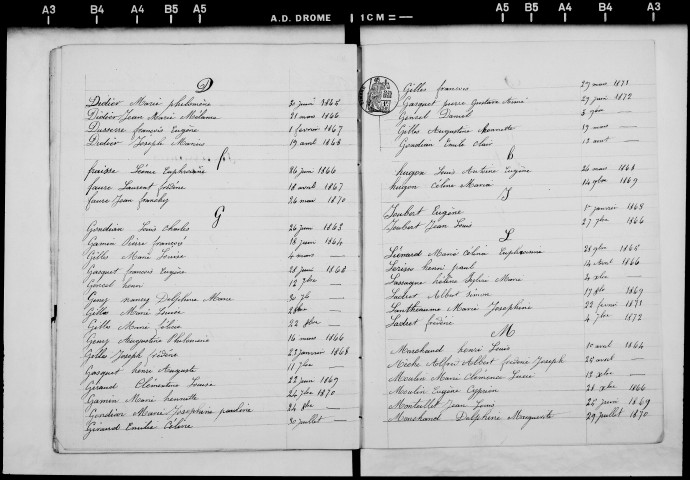 A3 B4 A4 B5 A5 A.D. DROME 1CM = A5 B5 A4 B4 A3
D
Didier Marie philomène 30 juin 1865
Didier Jean Marie Mélanie 21 mars 1866
Dusserre françois Eugène 1 fevrier 1867
Didier Joseph Marius 19 avril 1868
f
fraisse Léonie Euphrasine 26 juin 1866
faure Laurent fréderic 18 avril 1867
faure Jean 26 mai 1870
G
Gondian Louis Charles 26 juin 1863
Gamin Pierre françois 18 juin 1864
Gilles Marie Louise 4 mars —
Gasquet francois Eugène 28 juin 1865
Gensel henri 12 9bre —
Geny nancy Delphine Marie 30 7b —
Gilles Marie Louise 8bre —
Gilles Marie 22 8bre —
Geny Augustine Philomène 16 mars 1866
Gilles Joseph fréderic 22 janvier 1868
Gasquet henri Auguste 11 7bre —
Giraud Clémentine Louise 22 juin 1869
Gamin Marie henriette 24 7bre 1870
Gondian Marie Joséphine pauline 24 8bre —
Giraud Emilie 30 juillet —
Gilles francois 27 mars 1871
Gasquet pierre Gustave Aimé 29 juin 1872
Gensel Daniel 3
Gilles Augustine 19 mars —
Gondian Emile Clair 12 avril —
h
hugon Louis Antoine Eugène 26 mars 1868
hugon Celine Maria 14 9bre 1869
J
Joubert Eugène 1er janvier 1868
Joubert Jean Louis 27 7bre 1866
L
Léonard Marie Célina Euphrasine 28 9bre 1865
henri paul 14 avril 1866
Lassagne hélène Marie 2 xbre —
Ladret Albert Simon 17 8b 1869
Lantheaume Marie Joséphine 22 févri 1871
Ladret fréderic 4 7bre 1872
M
Marchand henri Louis 1er avril 1864
Albert fréderic Joseph 22 avril —
Moulin Marie Clémence Lucie 12 xbre —
Moulin Eugène Cyprien 28 xbre 1866
Montaillet Jean Louis 22 juin 1869
Marchand Delphine Marguerite 29 juillet 1870